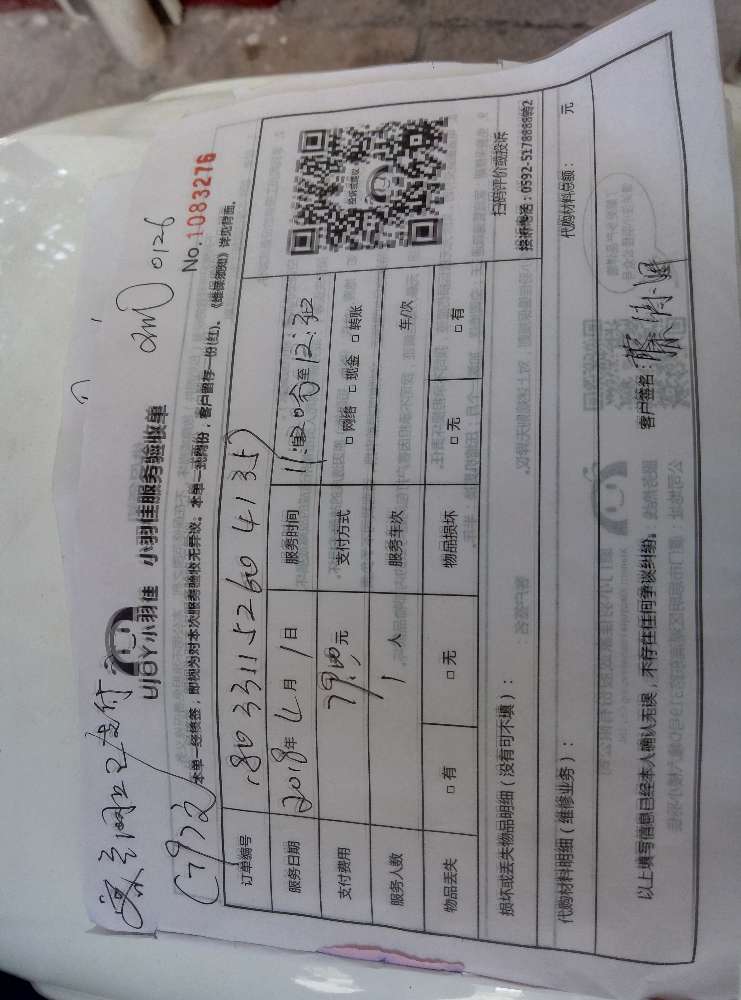 已支付
0126
UJOY小羽佳 小羽佳服务验收单
No.1083276
本单一经核签，即视为对本次服务验收无异议。本单一式两份，客户留存一份(红)。《维保须知》详见背面。
订单编号
服务日期 2018年4月1日 服务时间 至12:32
支付费用 79.00元 支付方式 □网络 □现金 □转账
服务人数 1人 服务车次 车/次
物品丢失 □有 □无 物品损坏 □无 □有
投诉或建议
扫码评价或投诉
投诉电话：0592-5178888转2
损坏或丢失物品明细（没有可不填）：
代购材料明细（维修业务）： 代购材料总额： 元
以上填写信息已经本人确认无误，不存在任何争议纠纷。 客户签名：